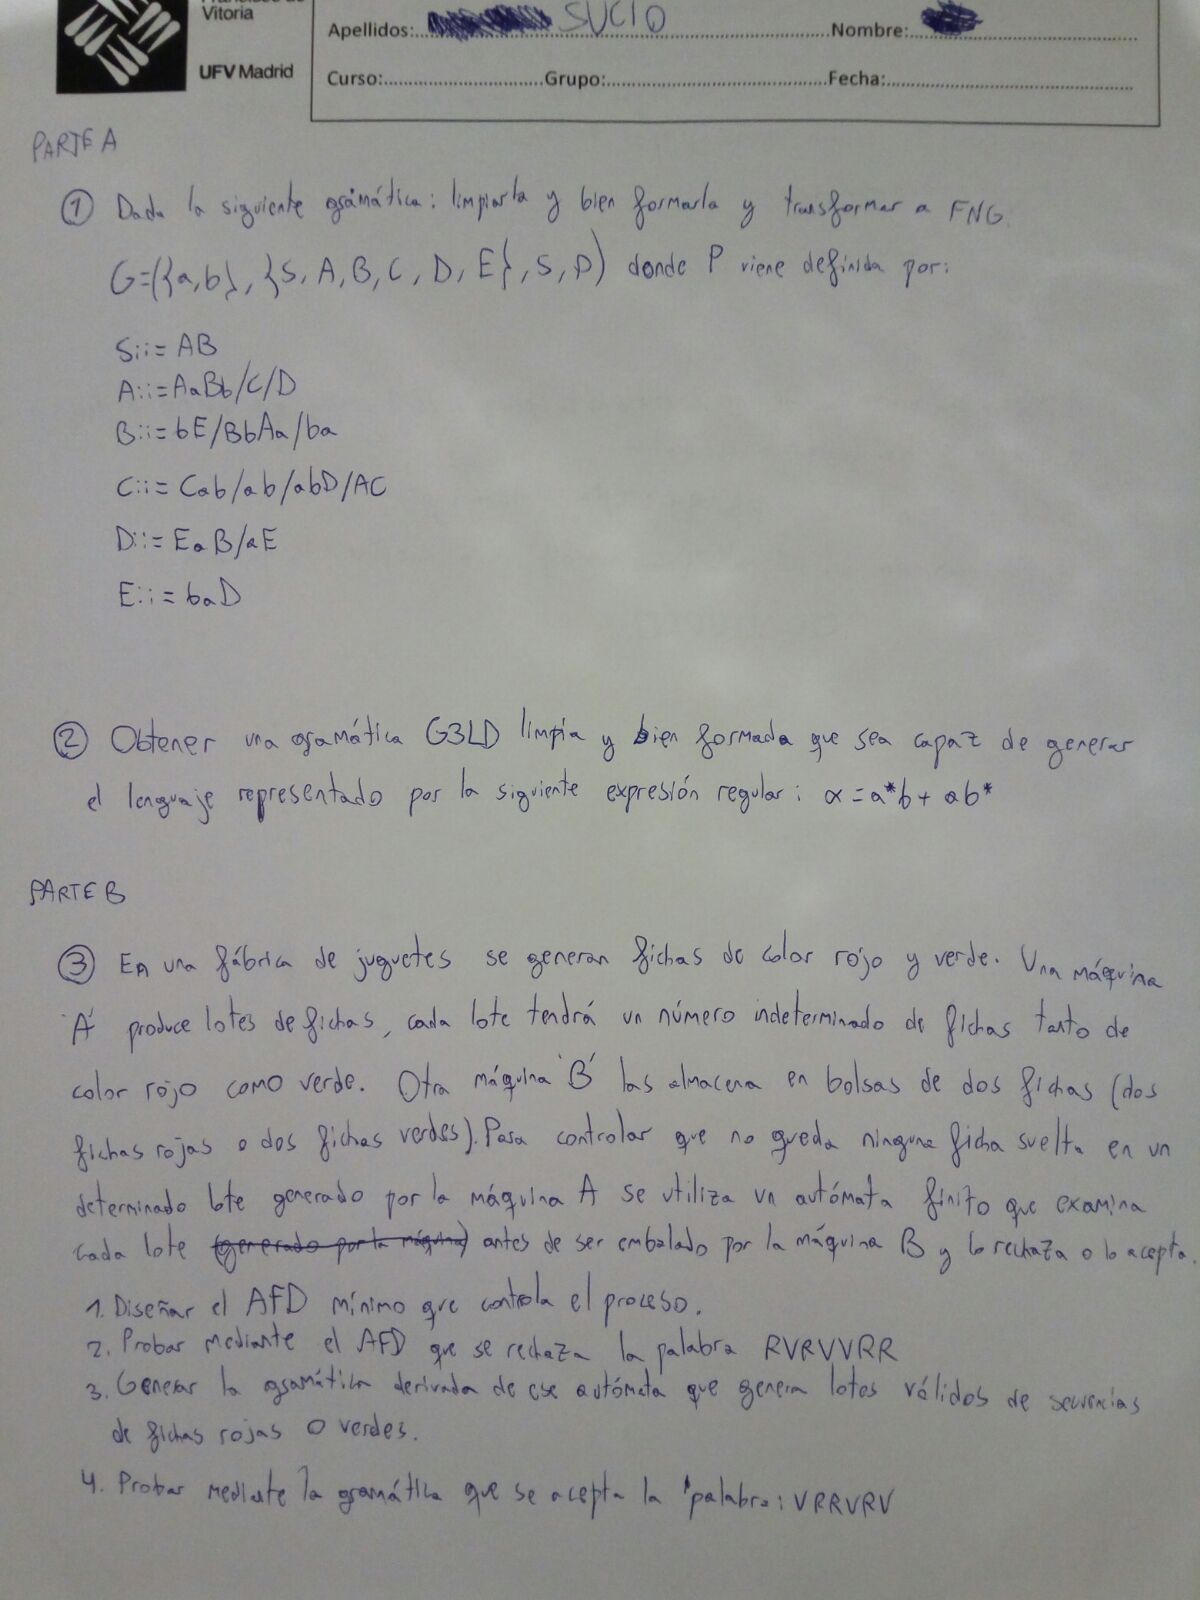 Francisco de
Vitoria
UFV Madrid
Apellidos: SUCIO Nombre:
Curso: Grupo: Fecha:
PARTE A
① Dada la siguiente gramática: limpiarla y bien formarla y transformar a FNG.
G=({a,b}, {S, A, B, C, D, E}, S, P) donde P viene definida por:
S::= AB
A::= AaBb/C/D
B::= bE/BbAa/ba
C::= Cab/ab/abD/AC
D::= EaB/aE
E::= baD
② Obtener una gramática G3LD limpia y bien formada que sea capaz de generar
el lenguaje representado por la siguiente expresión regular: α = a*b + ab*
PARTE B
③ En una fábrica de juguetes se generan fichas de color rojo y verde. Una máquina
'A' produce lotes de fichas, cada lote tendrá un número indeterminado de fichas tanto de
color rojo como verde. Otra máquina 'B' las almacena en bolsas de dos fichas (dos
fichas rojas o dos fichas verdes). Para controlar que no queda ninguna ficha suelta en un
determinado lote generado por la máquina A se utiliza un autómata finito que examina
cada lote (generado por la máquina) antes de ser embalado por la máquina B y lo rechaza o lo acepta.
1. Diseñar el AFD mínimo que controla el proceso.
2. Probar mediante el AFD que se rechaza la palabra RVRVVRR
3. Generar la gramática derivada de ese autómata que genera lotes válidos de secuencias
de fichas rojas o verdes.
4. Probar mediante la gramática que se acepta la palabra: VRRVRV